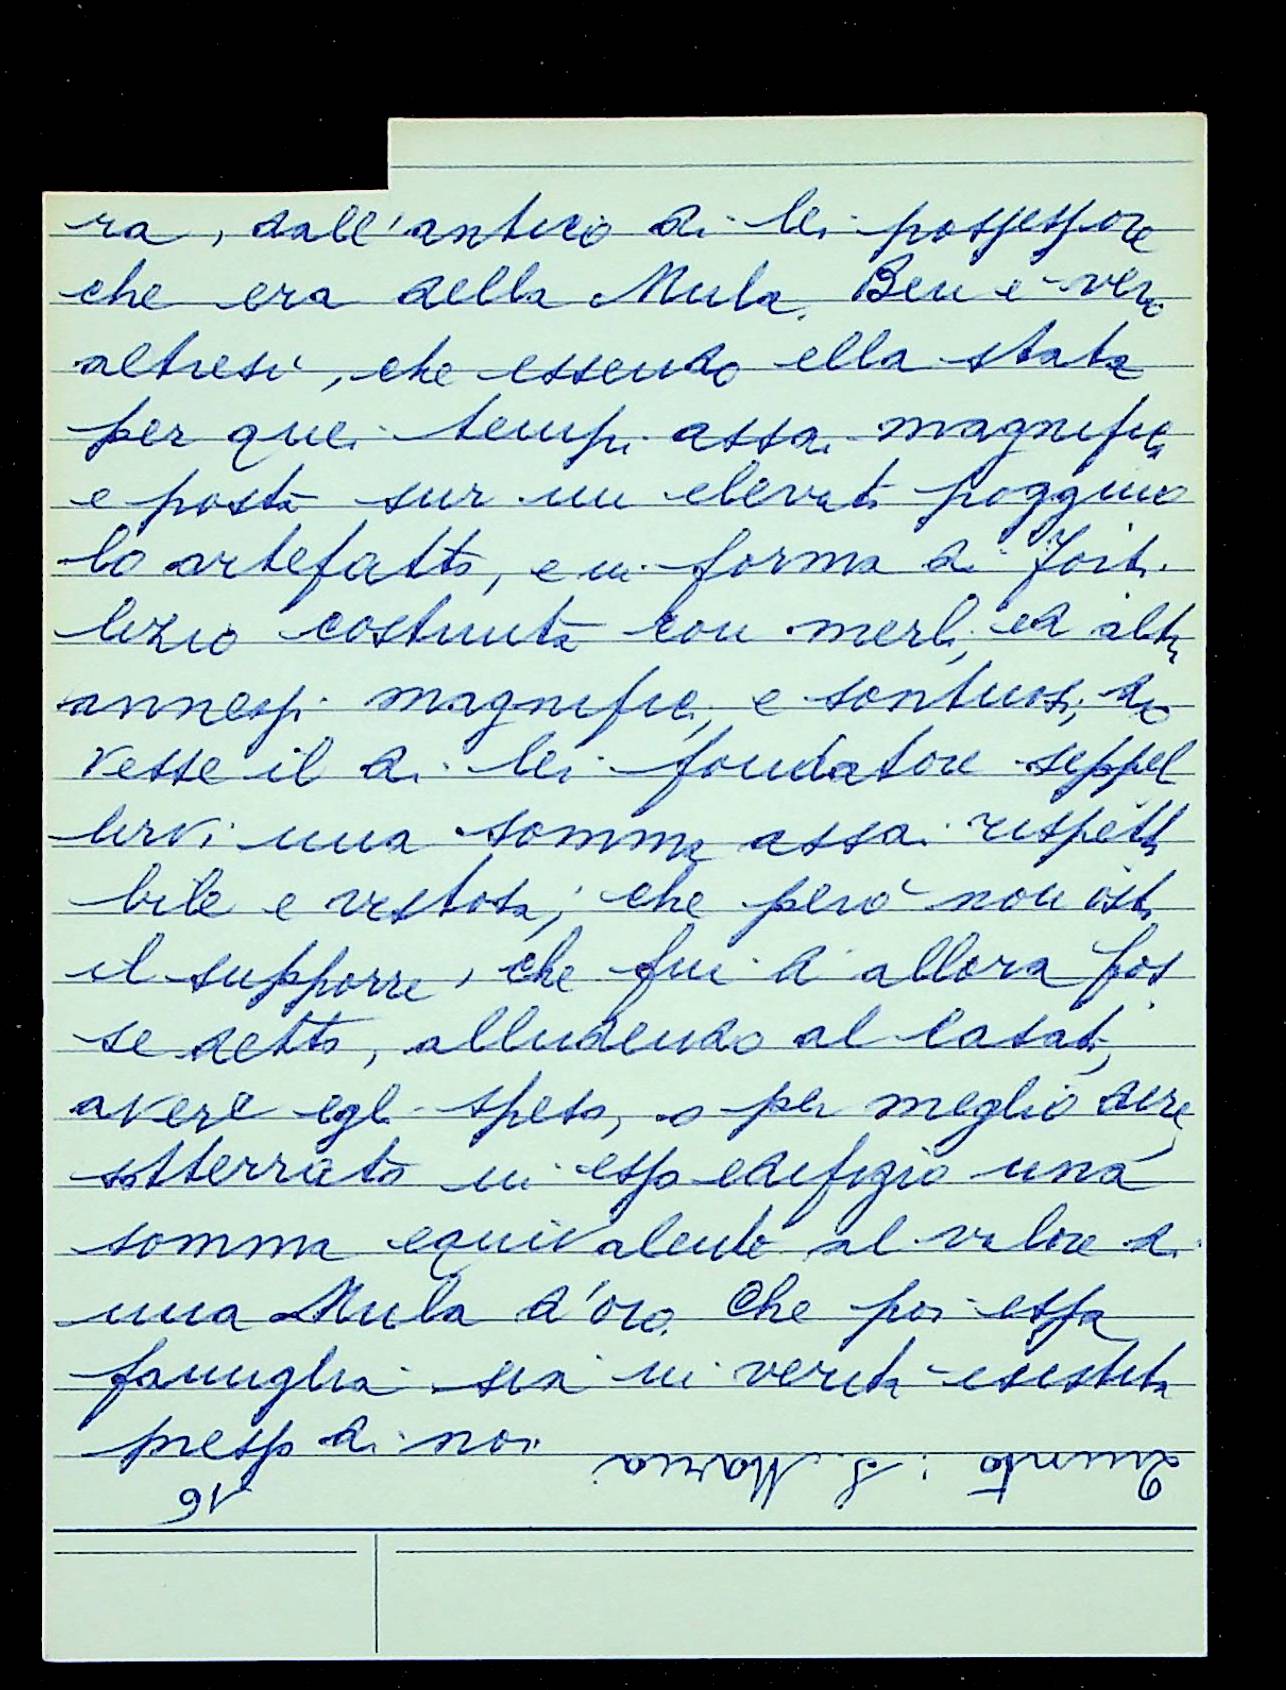 ra, dall'antico di lei possessore
che era della Mula. Ben è vero
altresì, che essendo ella stata
per quei tempi assai magnifica
e posta sur un elevato poggiuo
lo artefatto, e in forma di forti
lizio costruita con merli, ed altri
annessi magnifici, e sontuosi, do
vesse il di lei fondatore seppel
lirvi una somma assai rispetta
bile e vistosa; che però non osti
il supporre, che fin d'allora fos
se detto, alludendo al casato,
avere egli speso, o per meglio dire,
sotterrato in esso edifizio una
somma equivalente al valore di
una Mula d'oro. Che poi essa
famiglia sia in verità esistita
presso di noi
Quinto: S. Maria
16